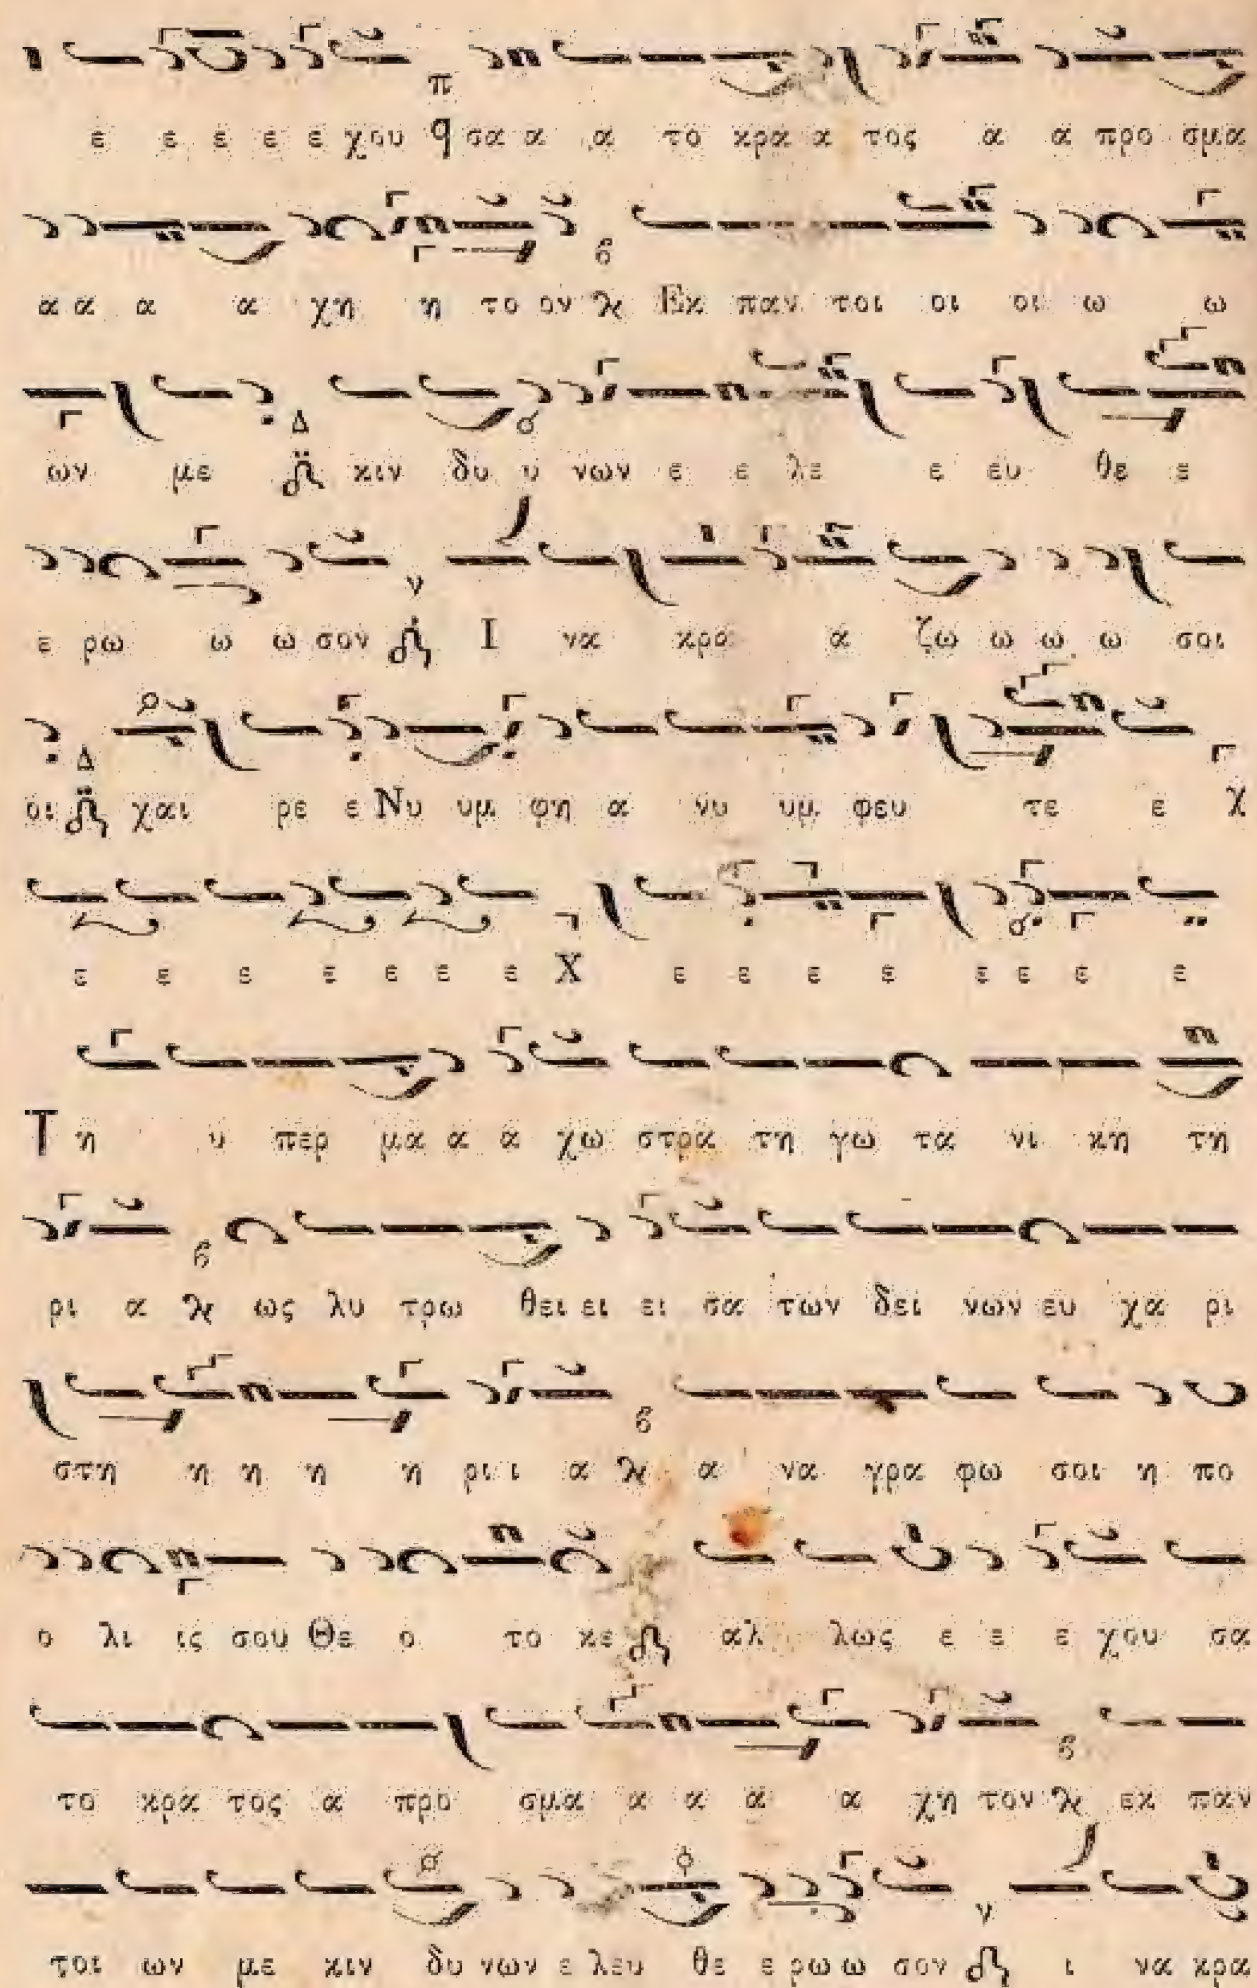 π
ε ε ε ε ε χου q σα α α το κρα α τος α α προ σμα
α α α α χη η το ον Εκ παν τοι οι οι ω ω
ων με κιν δυ υ νων ε ε λε ε ευ θε ε
ε ρω ω ω σον Ι να κρα α ζω ω ω ω σοι
οι χαι ρε ε Νυ υμ φη α νυ υμ φευ τε ε χ
ε ε ε ε ε ε ε Χ ε ε ε ε ε ε ε ε
Τη υ περ μα α α χω στρα τη γω τα νι κη τη
ρι α ως λυ τρω θει ει ει σα των δει νων ευ χα ρι
στη η η η η ρι ι α α να γρα φω σοι η πο
ο λι ις σου Θε ο το κε αλ λως ε ε ε χου σα
το κρα τος α προ σμα α α α α χη τον εκ παν
τοι ων με κιν δυ νων ε λευ θε ε ρω ω σον ι να κρα